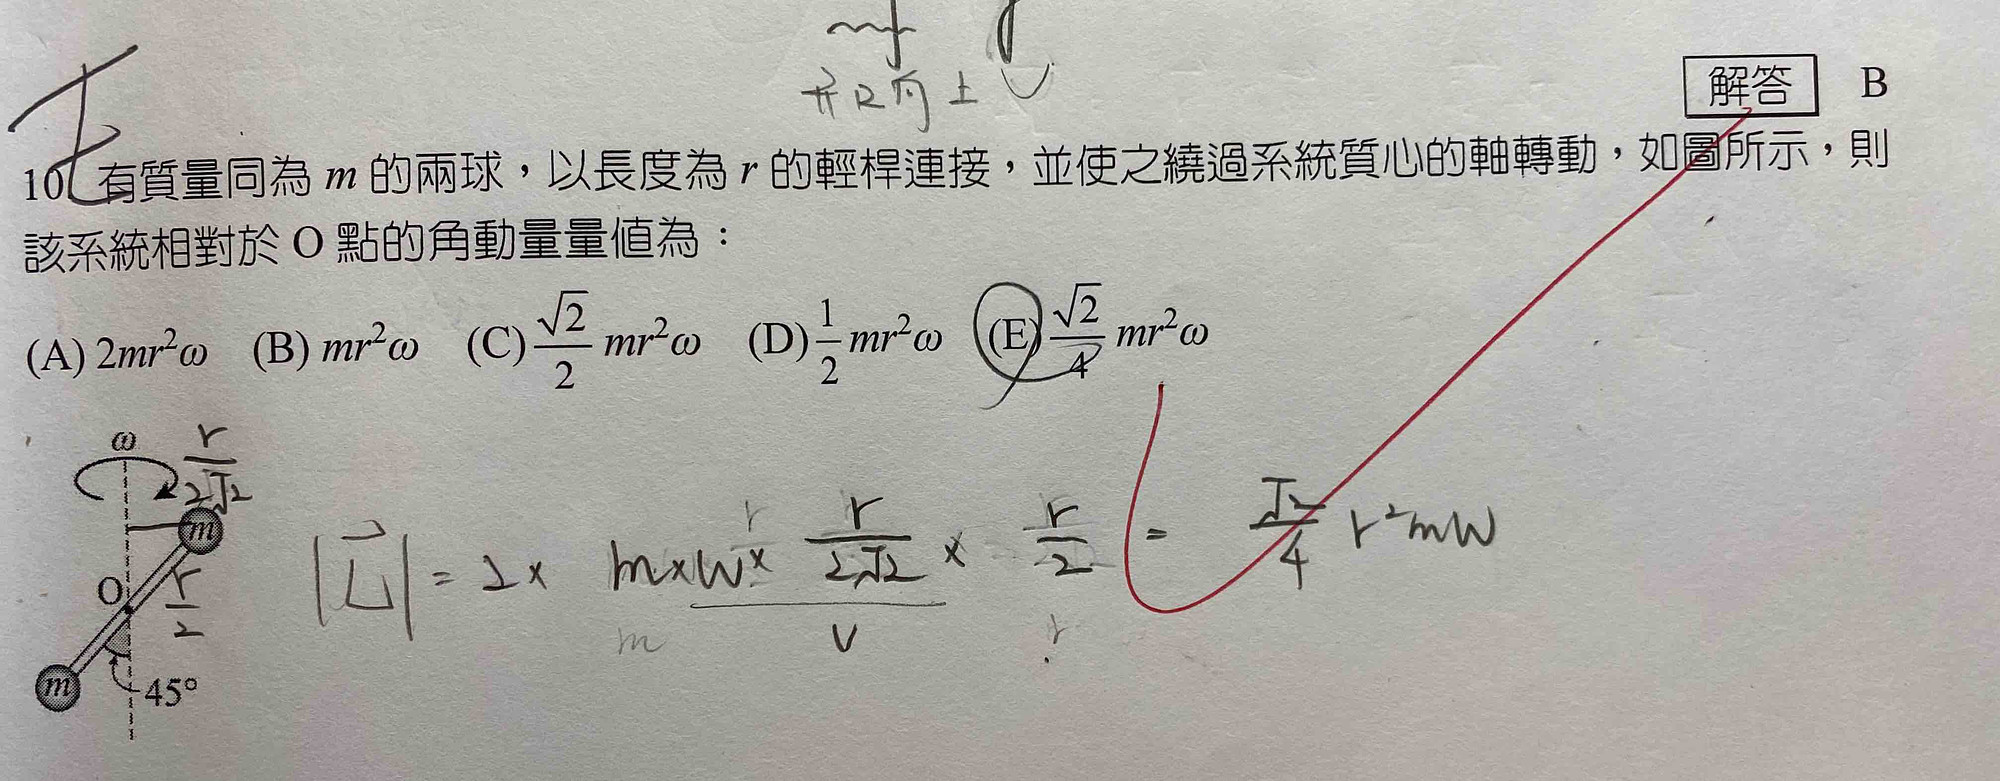 開口向上
解答 B
10. 有質量同為 m 的兩球,以長度為 r 的輕桿連接,並使之繞過系統質心的軸轉動,如圖所示,則
該系統相對於 O 點的角動量量值為:
(A) 2mr²ω (B) mr²ω (C) √2/2 mr²ω (D) 1/2 mr²ω (E) √2/4 mr²ω
ω
r/2√2
m
O
r/2
m
45°
|L⃗| = 2 × m × w × r/2√2 × r/2 = √2/4 r²mw
v
m
r